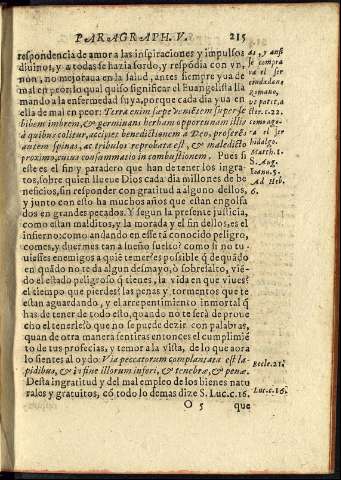 PARAGRAPH. V. 215
respondencia de amor a las inspiraciones y impulsos
diuinos, y a todas se hazia sordo, y respõdia con vn,
non, no mejoraua en la salud, antes siempre yua de
mal en peor: lo qual quiso significar el Euangelista lla
mando a la enfermedad suya, porque cada dia yua en
ella de mal en peor: Terra enim sæpe venientem super se
bibens imbrem, & germinans herbam opportunam illis
à quibus colitur, accipit benedictionem à Deo, proferẽs
autem spinas, ac tribulos reprobata est, & maledicto
proxima, cuius consummatio in combustionem. Pues si
este es el fin y paradero que han de tener los ingra-
tos, sobre quien llueue Dios cada dia millones de be
neficios, sin responder con gratitud a alguno dellos,
y junto con esto ha muchos años que estan engolfa
dos en grandes pecados. Y segun la presente justicia,
como estan malditos, y la morada y el fin dellos, es el
infierno: como andando en esse tã conocido peligro,
comes, y duermes tan a sueño suelto? como si no tu-
uiesses enemigos a quiẽ temer? es possible q̃ de quãdo
en quãdo no te da algun desmayo, ò sobresalto, viẽ-
do el estado peligroso q̃ tienes, la vida en que viues?
el tiempo que pierdes? las penas y tormentos que te
estan aguardando, y el arrepentimiento inmortal q̃
has de tener de todo esto, quando no te será de proue
cho el tenerle? ò que no se puede dezir con palabras,
quan de otra manera sentiras entonces el cumplimiẽ
to de tus profecias, y temor a la vista, de lo que aora
lo sientes al oydo: Via peccatorum complantata est la-
pidibus, & in fine illorum inferi, & tenebræ, & penæ.
Desta ingratitud y del mal empleo de los bienes natu
rales y gratuitos, cõ todo lo demas dize S. Luc. c. 16.
O 5 que
as, y ansi
le compra
ra el ser
ciudadano
Romano,
Actor. c. 22.
ra el ser
hidalgo.
S. Aug.
Ad Heb.
6.
Eccle. 21.
Luc. c. 16.